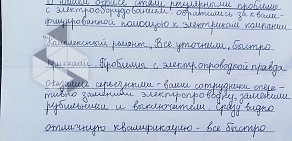 В нашем офисе стали регулярными проблемы
с электрооборудованием. Обратились за квали-
фицированной помощью к электрикам компании
"Комплексный ремонт". Все уточнили, быстро
приехали. Проблемы с электропроводкой правда
оказались серьезными - ваши сотрудники опера-
тивно заменили электропроводку, заменили
рубильники и выключатели. Сразу видно
отличную квалификацию - все быстро